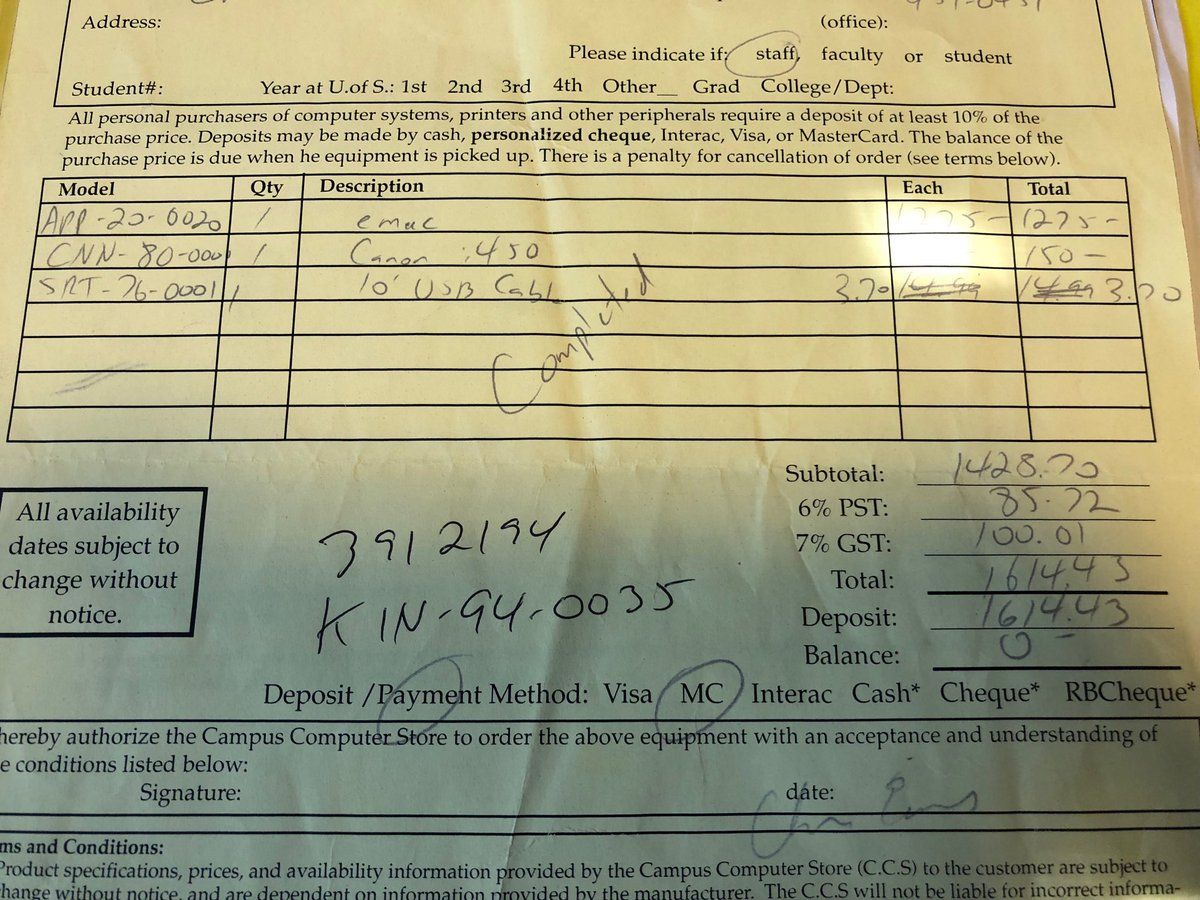 Address: (office):
Please indicate if: staff, faculty or student
Student#: Year at U.of S.: 1st 2nd 3rd 4th Other__ Grad College/Dept:
All personal purchasers of computer systems, printers and other peripherals require a deposit of at least 10% of the
purchase price. Deposits may be made by cash, personalized cheque, Interac, Visa, or MasterCard. The balance of the
purchase price is due when he equipment is picked up. There is a penalty for cancellation of order (see terms below).
Model Qty Description Each Total
APP-20-0020 1 emac 1275- 1275-
CNN-80-000 1 Canon i450 150-
SRT-76-0001 1 10' USB Cabl 3.70 14.99 14.99 3.70
Completed
Subtotal: 1428.70
6% PST: 85.72
7% GST: 100.01
Total: 1614.43
Deposit: 1614.43
Balance: 0-
All availability
dates subject to
change without
notice.
3912194
KIN-94-0035
Deposit /Payment Method: Visa MC Interac Cash* Cheque* RBCheque*
hereby authorize the Campus Computer Store to order the above equipment with an acceptance and understanding of
e conditions listed below:
Signature: date:
ms and Conditions:
Product specifications, prices, and availability information provided by the Campus Computer Store (C.C.S) to the customer are subject to
hange without notice, and are dependent on information provided by the manufacturer. The C.C.S will not be liable for incorrect informa-